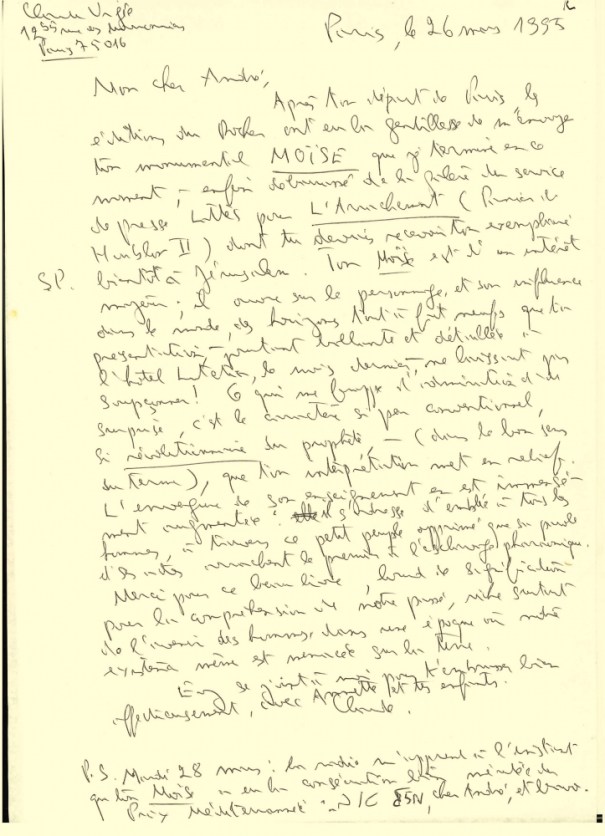 Claude Vigée
12
Paris 75016
Paris, le 26 mars 1995
Mon cher André,
Après ton départ de Paris, les
éditions du Rocher ont eu la gentillesse de m'envoyer
ton monumental MOÏSE que je termine en ce
moment, – enfin débarrassé de la galère du service
de presse Lattès pour L'Arrachement (Panier de
Houblon II) dont tu devrais recevoir ton exemplaire
bientôt à Jérusalem. Ton Moïse est d'un intérêt
SP.
majeur ; il ouvre sur le personnage, et son influence
dans le monde, des horizons tout à fait neufs que ta
présentation, – pourtant brillante et détaillée à
l'hôtel Lutetia, le mois dernier, ne laissait pas
soupçonner ! Ce qui me frappe d'admiration et de
surprise, c'est le caractère si peu conventionnel,
si révolutionnaire du prophète, – (dans le bon sens
du terme), que ton interprétation met en relief.
L'envergure de son enseignement en est immensé-
ment augmentée : il s'adresse d'emblée à tous les
hommes, à travers ce petit peuple opprimé que sa parole
et ses actes arrachent le premier à l'esclavage pharaonique.
Merci pour ce beau livre, lourd de signification
pour la compréhension de notre passé, voire surtout
de l'avenir des hommes dans une époque où notre
existence même est menacée sur la terre.
Évy se joint à moi pour t'embrasser bien
affectueusement, avec Annette et tes enfants.
Claude.
P.S. Mardi 28 mars : la radio m'apprend à l'instant
que ton Moïse a eu la consécration bien méritée du
Prix Méditerranée : cher André, et bravo.